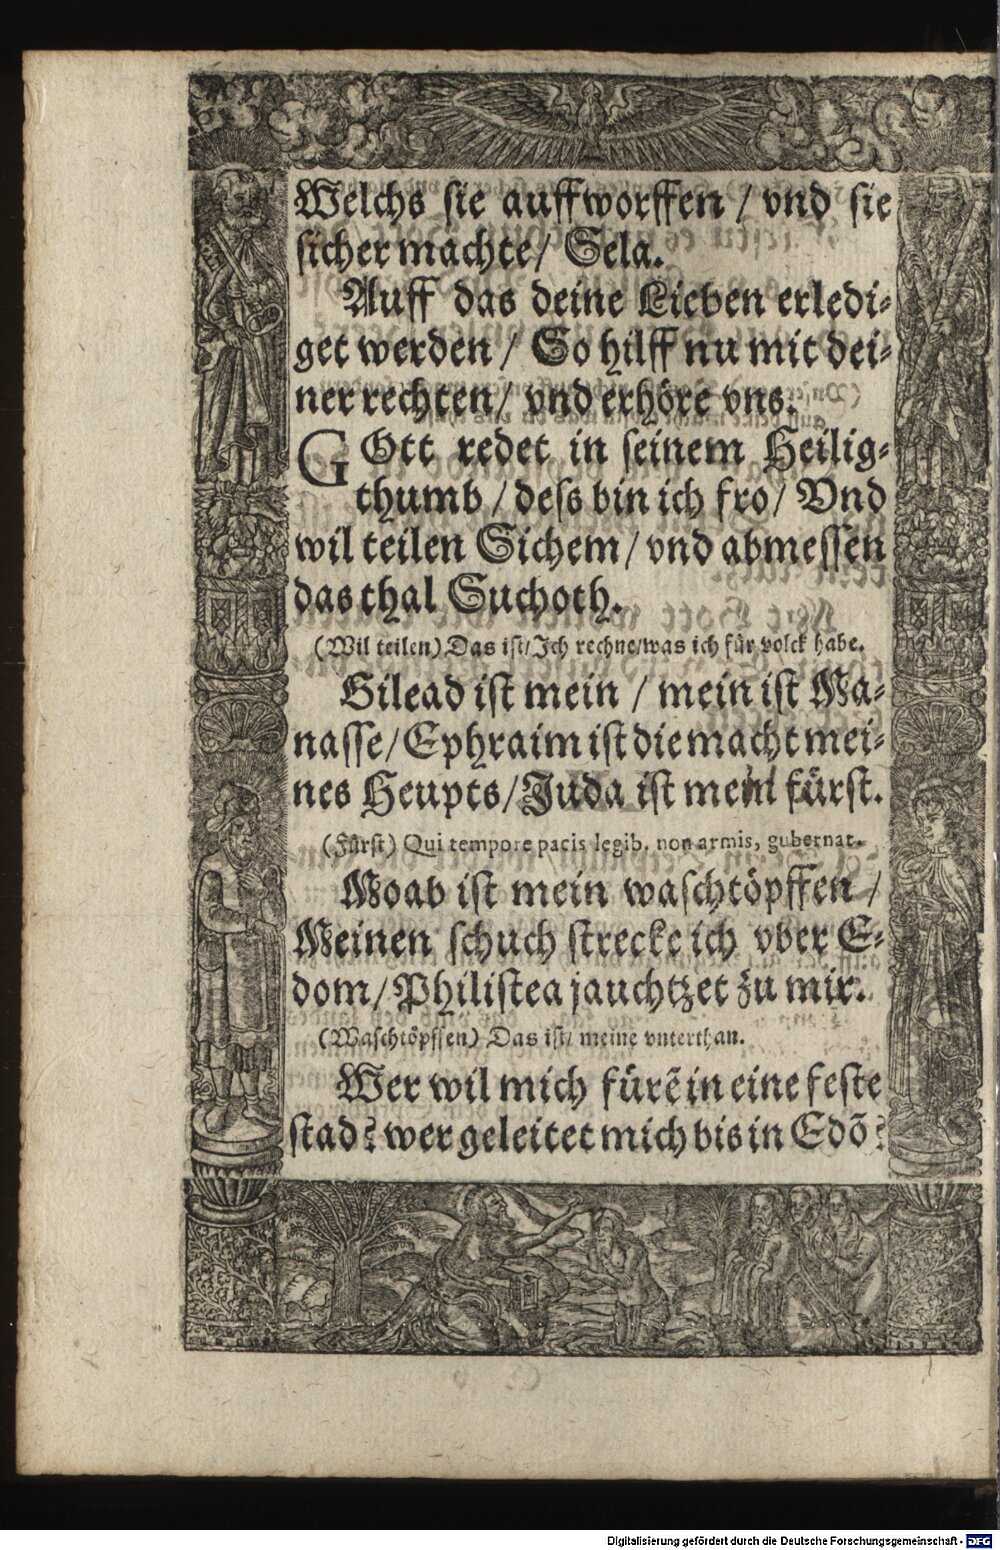 Welchs sie auffworffen / vnd sie
sicher machte / Sela.
Auff das deine Lieben erledi⸗
get werden / So hilff nu mit dei⸗
ner rechten / vnd erhöre vns.
GOtt redet in seinem Heilig⸗
thumb / dess bin ich fro / Vnd
wil teilen Sichem / vnd abmessen
das thal Suchoth.
(Wil teilen) Das ist / Ich rechne / was ich für volck habe.
Gilead ist mein / mein ist Ma⸗
nasse / Ephraim ist die macht mei⸗
nes Heupts / Juda ist mein fürst.
(Fürst) Qui tempore pacis legib. non armis, gubernat.
Moab ist mein waschtöpffen /
Meinen schuch strecke ich vber E⸗
dom / Philistea jauchtzet zu mir.
(Waschtöpffen) Das ist / meine vnterthan.
Wer wil mich fürẽ in eine feste
stad? wer geleitet mich bis in Edõ?
Digitalisierung gefördert durch die Deutsche Forschungsgemeinschaft - DFG